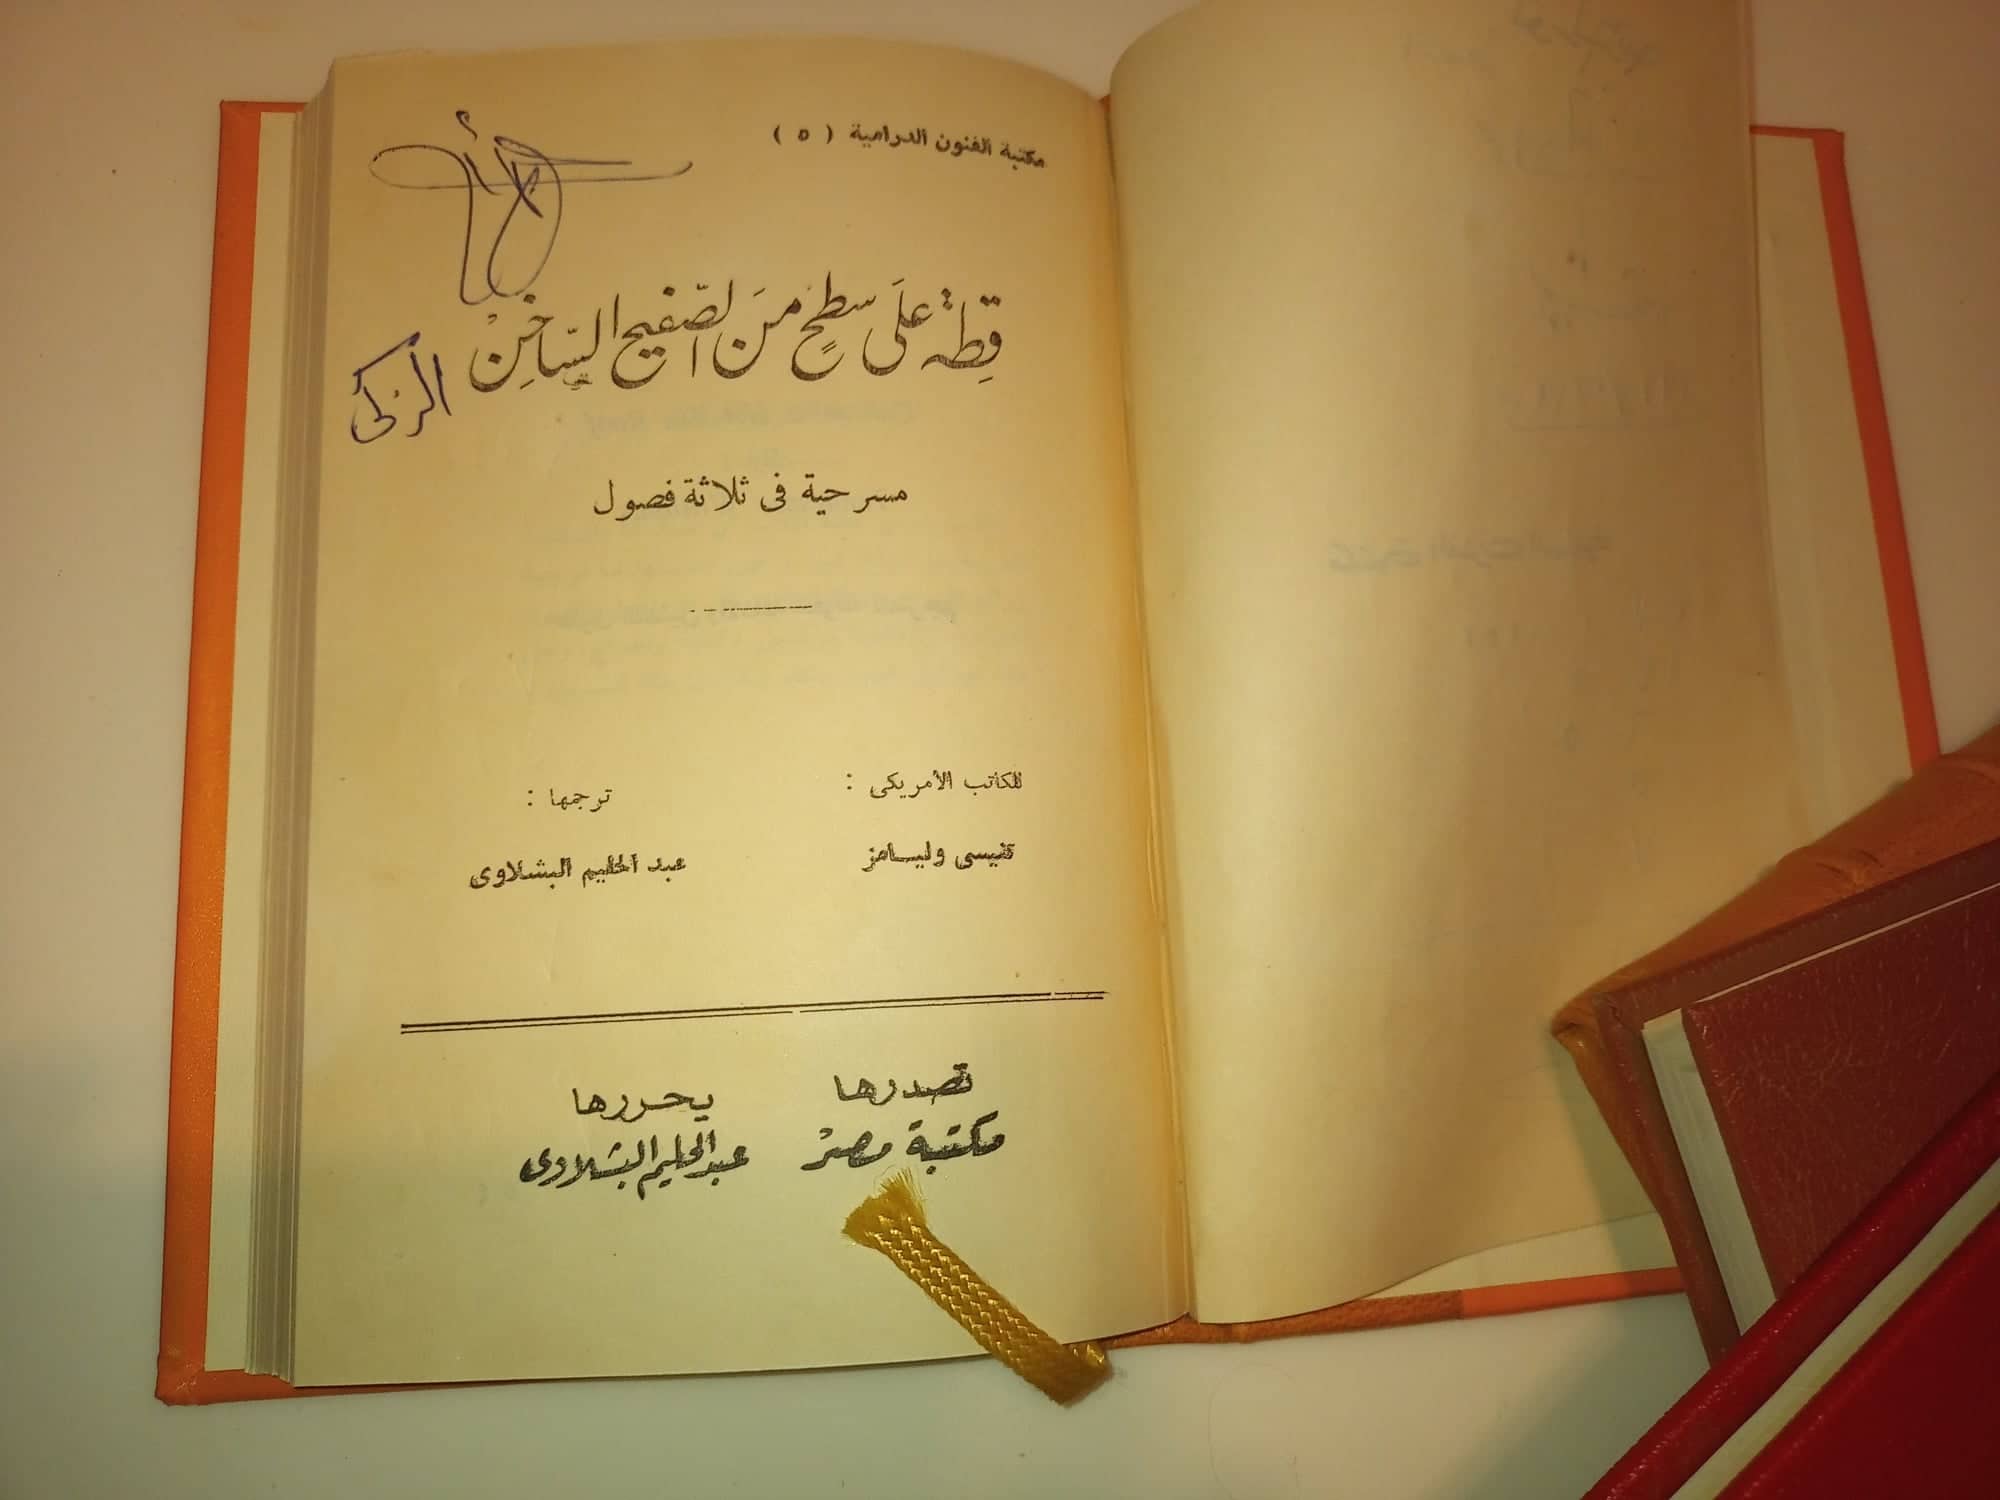 مكتبة الفنون الدرامية ( ٥ )
قطة على سطح من الصفيح الساخن
مسرحية فى ثلاثة فصول
للكاتب الأمريكى :
تنيسى وليامز
ترجمها :
عبد الحليم البشلاوى
تصدرها
مكتبة مصر
يحررها
عبد الحليم البشلاوى